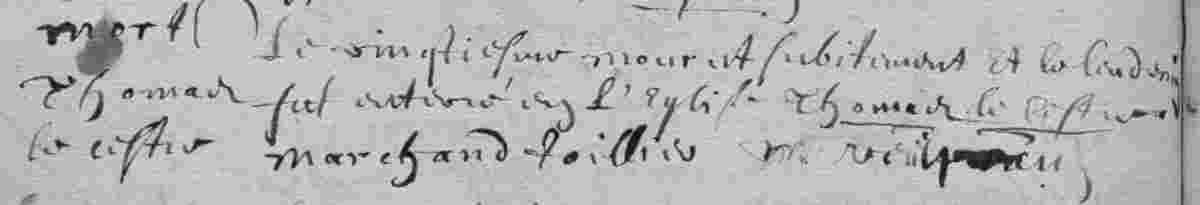 mort Le vingtiesme mourut subitement et le lendem
Thomas fut enterré en l'Eglise Thomas le cistre
le cistre marchand toillier